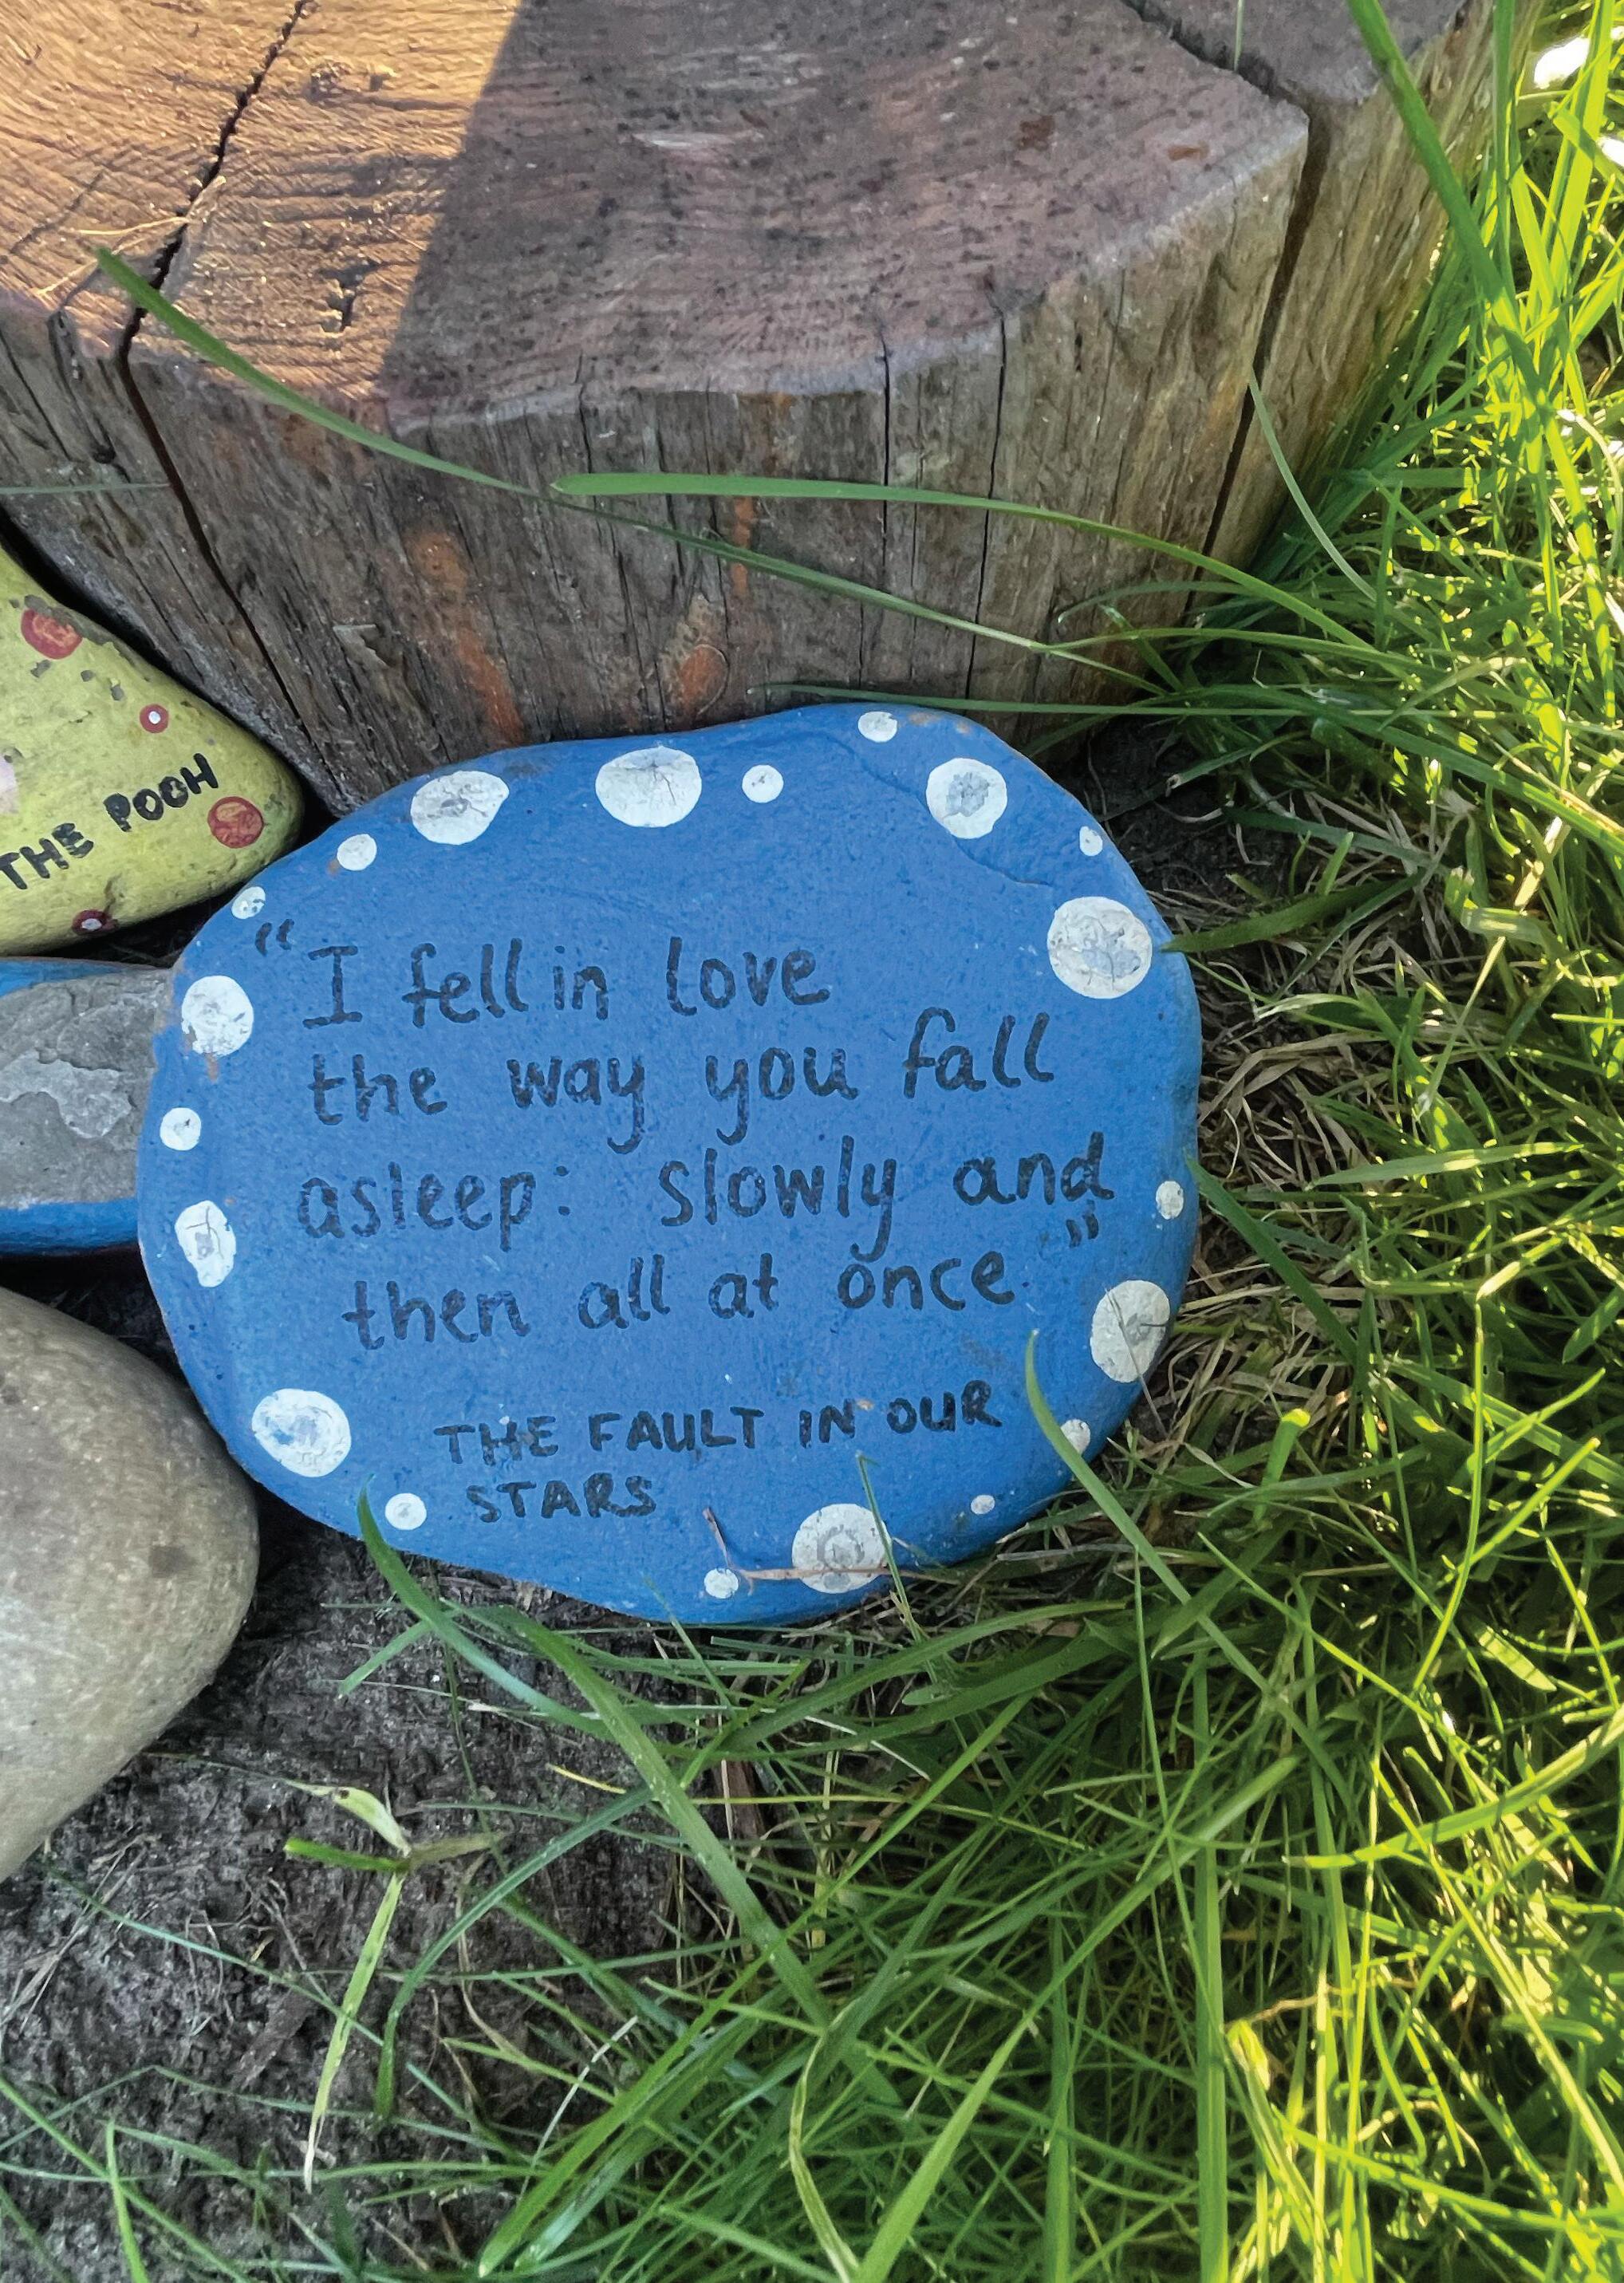 THE POOH
“I fell in love
the way you fall
asleep: slowly and
then all at once”
THE FAULT IN OUR
STARS